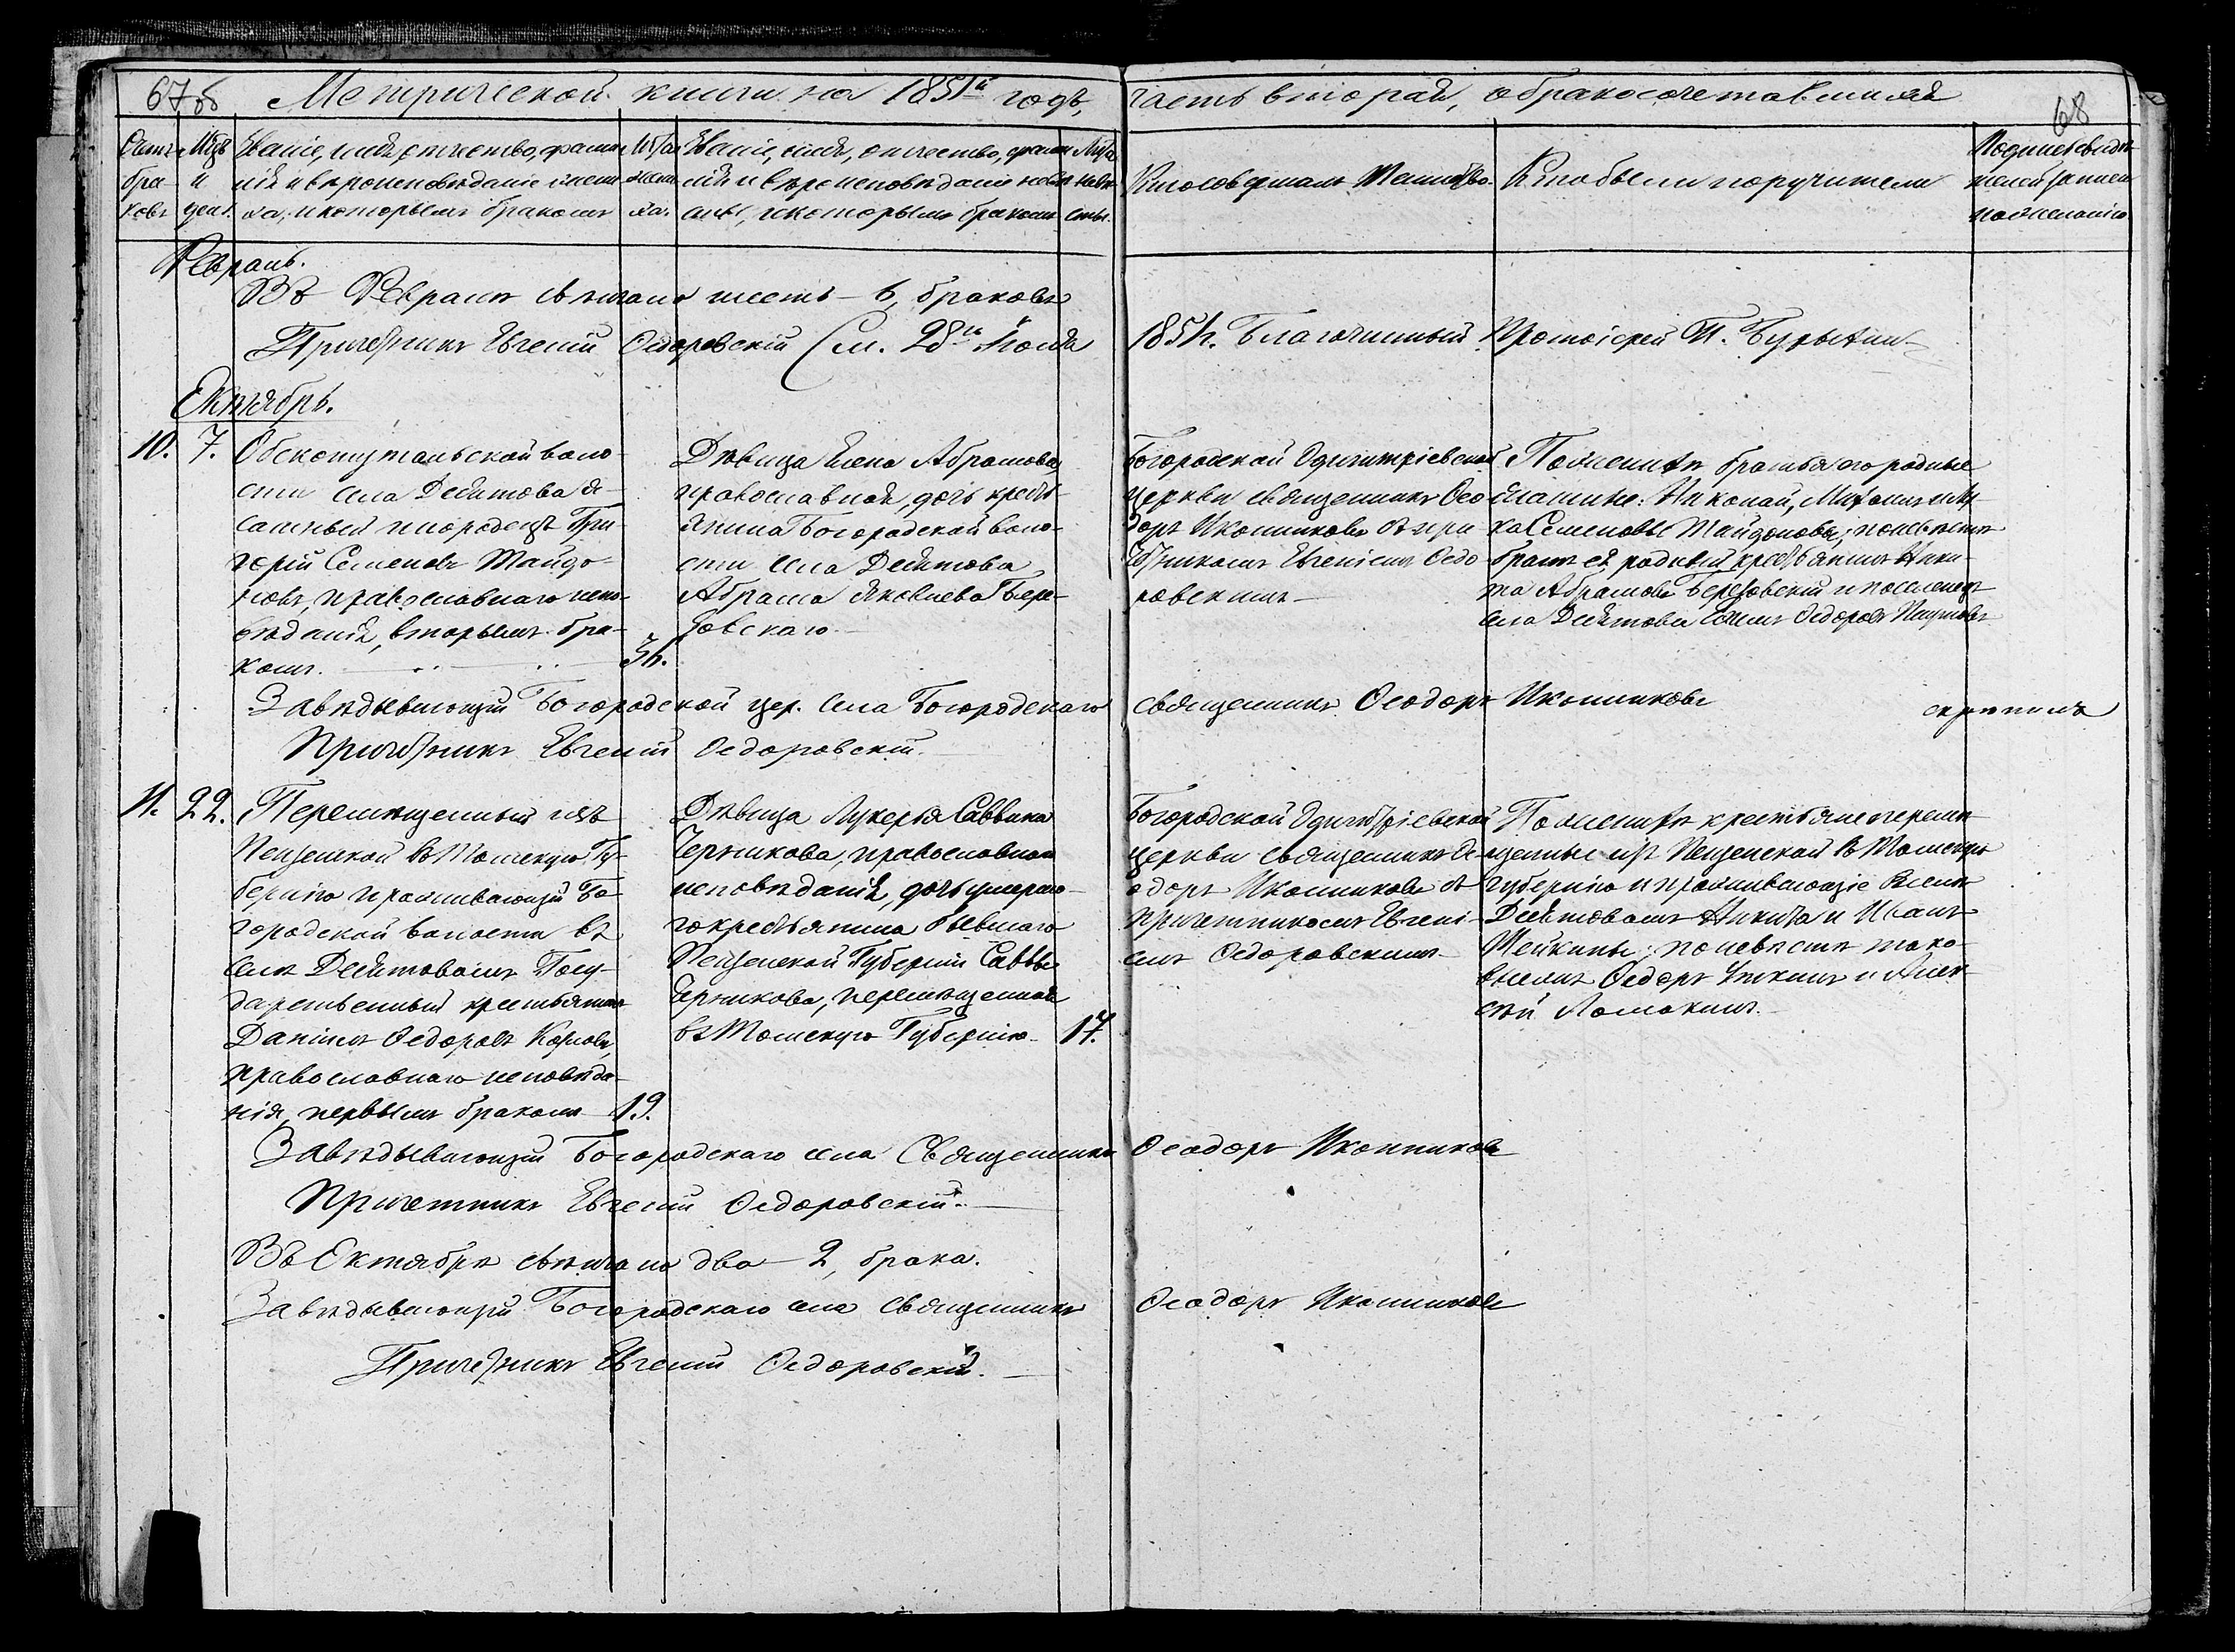 67об Метрической книги на 1851й годъ, часть вторая, о бракосочетавшихся 68
Счетъ бра- ковъ
М-цъ и день.
Званіе, имя, отчество, фами-
лія и вѣроисповѣданіе жени-
ха, и которымъ бракомъ
Лѣта жени- ха.
Званіе, имя, отчество, фами-
лія и вѣроисповѣданіе невѣ-
сты, и которымъ бракомъ
Лѣта невѣ- сты.
Кто совершалъ Таинство.
Кто были поручители
Подпись свидѣ-
телей записи
по желанію
Февраль.
Въ Февралѣ вѣнчано шесть - 6, браковъ
Причетникъ Евгеній Ѳедоровскій См. 28го Іюля 185 г. Благочинный Протоіерей П.
Октябрь.
10. 7.
Обскотутальской воло-
сти села Десятова я-
сашный инородецъ Гри-
горій Семеновъ Тайдо-
новъ, православнаго испо-
вѣданія, вторымъ бра-
комъ.
Дѣвица Елена Абрамова,
православная, дочь кресть-
янина Богородской воло-
сти села Десятова
Абрама Яковлева Бере-
зовскаго.
Богородской Одигитріевской
церкви священникъ Ѳео-
доръ Иконниковъ съ при-
четникомъ Евгеніемъ Ѳедо-
ровскимъ
По женихѣ братья его родные
ясашные: Николай, Михаилъ и Лу-
ка Семеновы Тайдоновы; по невѣстѣ
братъ ея родный крестьянинъ Ники-
та Абрамовъ Березовскій и поселенецъ
села Десятова Ѳедоровъ Наумовъ
Завѣдывающій Богородской цер. села Богородскаго священникъ Ѳеодоръ Иконниковъ
скрѣпилъ
Причетникъ Евгеній Ѳедоровскій.
11. 22.
Перемѣщенный изъ
Пензенской въ Томскую Гу-
бернію и проживающій Бо-
городской волости въ
селѣ Десятовомъ Госу-
дарственный крестьянинъ
Даніилъ Ѳедоровъ
православнаго исповѣда-
нія, первымъ бракомъ 19.
Дѣвица Лукерья Саввина
Черникова, православнаго
исповѣданія, дочь умерша-
го крестьянина бывшаго
Пензенской Губерніи Саввы
Черникова, перемѣщенная
въ Томскую Губернію. 17.
Богородской Одигитріевской
церкви священникъ Ѳе-
одоръ Иконниковъ съ
причетникомъ Евгені-
емъ Ѳедоровскимъ
По женихѣ крестьяне перемѣ-
щенные изъ Пензенской въ Томскую
губернію и проживающіе въ селѣ
Десятовомъ Никита и Иванъ
Шейкины; по невѣстѣ тако-
выежъ Ѳедоръ и Алек-
сѣй Ломакинъ.
Завѣдывающій Богородскаго села Священникъ Ѳеодоръ Иконниковъ
Причетникъ Евгеній Ѳедоровскій.
Въ Октябрѣ вѣнчано два - 2, брака.
Завѣдывающій Богородскаго села Священникъ Ѳеодоръ Иконниковъ
Причетникъ Евгеній Ѳедоровскій.